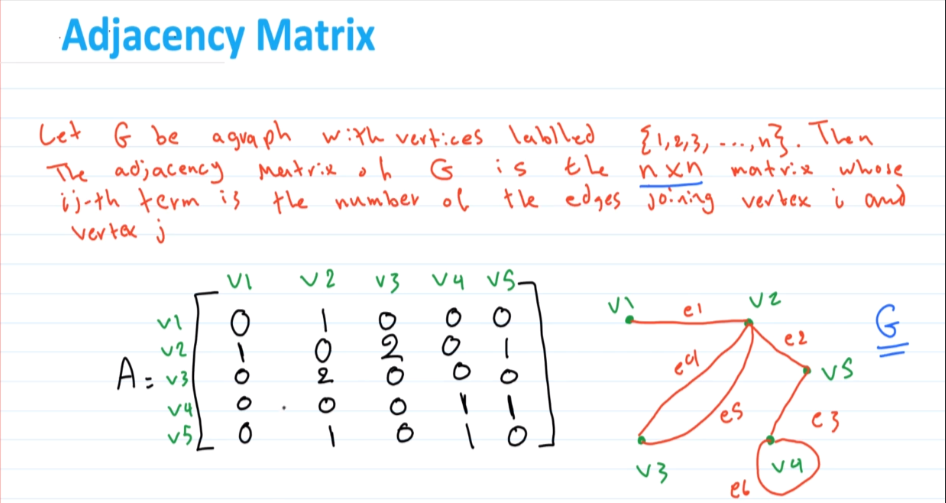 Adjacency Matrix
Let G be a graph with vertices lablled {1,2,3, ...,n}. Then
The adjacency matrix of G is the nxn matrix whose
ij-th term is the number of the edges joining vertex i and
vertex j
v1 v2 v3 v4 v5
v1 0 1 0 0 0
v2 1 0 2 0 1
A = v3 0 2 0 0 0
v4 0 0 0 1 1
v5 0 1 0 1 0
v1 e1 v2
G
e2
e4 v5
e5 e3
v3 v4
e6